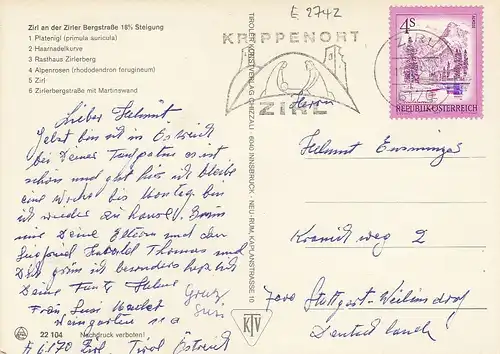 Zirl an der Zirler Bergstraße 16% Steigung
1 Platenigl (primula auricula)
2 Haarnadelkurve
3 Rasthaus Zirlerberg
4 Alpenrosen (rhododendron ferugineum)
5 Zirl
6 Zirlerbergstraße mit Martinswand
E 2742
KRIPPENORT
ZIRL
4S
REPUBLIK ÖSTERREICH
TIROLER KUNSTVERLAG CHIZZALI · 6040 INNSBRUCK - NEU-RUM, KAPLANSTRASSE 10
KTV
Lieber Helmut
Jetzt bin ich in Östreich
bei Deiner es ist
schön und ich bleibe
eine Woche bis Montag bin
ich wieder zu hause.
mir Deine Eltern und den
Siegfried Thomas und
Dich grüsse ich besonders herzlich
Deine Tante
Frau
11 a
A 6170 Zirl Tirol Östreich
22 104 Nachdruck verboten!
Herrn
Helmut
weg 2
7000 Stuttgart-Weilimdorf
Deutschland